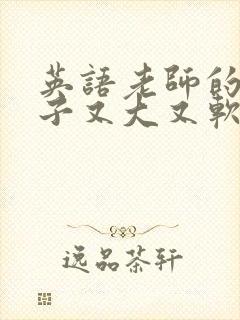 英語老師的
子又大又軟
逸品茶軒